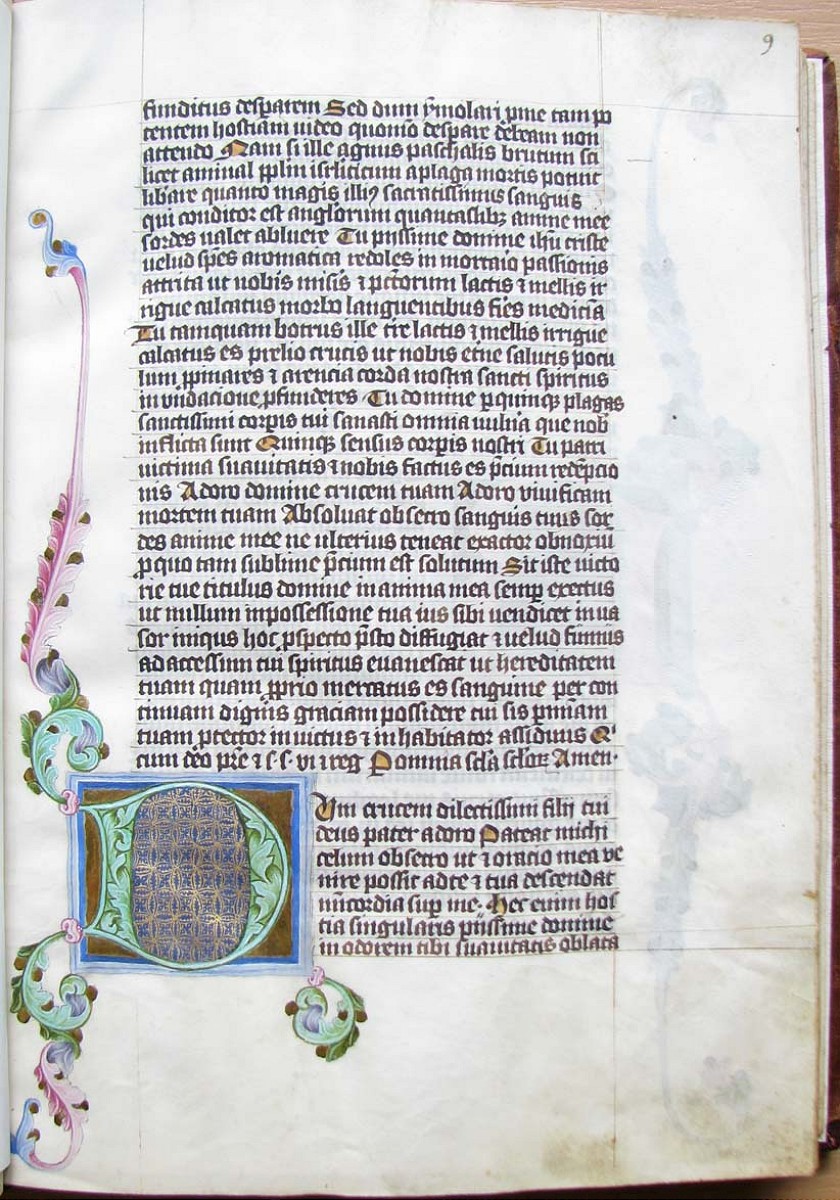 9
funditus desperem Sed dum ymolari pme tam po
tentem hostiam uideo quomo despare debeam non
attendo Nam si ille agnus paschalis brutum sci
licet animal pplm isrliticum a plaga mortis potuit
libare quanto magis illius sacratissimus sanguis
qui conditor est anglorum quantaslibz anime mee
sordes ualet abluere Tu piissime domine ihu criste
uelud spes aromatica redoles in mortaio passionis
attrita ut nobis misis ⁊ pctorum lactis ⁊ mellis ir
rigue calcatus morbo languentibus fies medicia
Tu tamquam botrus ille tre lactis ⁊ mellis irrigue
calcatus es prelio crucis ut nobis etne salutis pocu
lum ppinares ⁊ arencia corda nostra sancti spiritus
in vndacione pfunderes Tu domine p quinque plagas
sanctissimi corpis tui sanasti omnia vulnia que nob
inflicta sunt Quinque sensus corpis nostri Tu patri
uictima suauitatis ⁊ nobis factus es pcium redepcio
nis Adoro domine crucem tuam Adoro viuificam
mortem tuam Absoluat obsecro sanguis tuus sor
des anime mee ne ulterius teneat exactor obnoxiu
p quo tam sublime pcium est solutum Sit iste uicto
rie tue titulus domine in anima mea semp erectus
ut nullum inpossessione tua ius sibi uendicet inua
sor iniqus hoc pspecto psto diffugiat ⁊ uelud fumus
ad accessum tui spiritus euanescat ut hereditatem
tuam quam pprio mercatus es sanguine per con
tinuam digneris graciam possidere cui sis pmniam
tuam ptector inuictus ⁊ inhabitator assiduus Q'
cum deo pre ⁊ s. s. vi ⁊ reg P omnia scla sclorz Amen.
D Vm crucem dilectissimi filij tui
deus pater adoro Pateat michi
celum obsecro ut ⁊ oracio mea ve
nire possit ad te ⁊ tua descendat
micordia sup me. Hec enim hos
tia singularis piissime domine
in odorem tibi suauitatis oblata